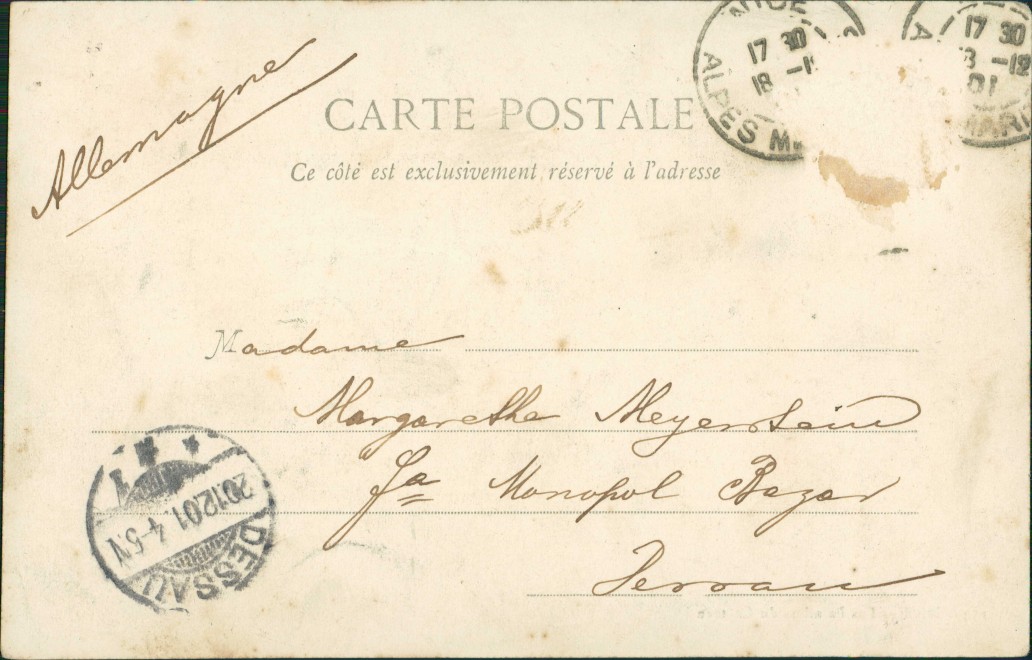 NICE
17 30
18 -12
ALPES M
A
17 30
8 -12
01
MARI
Allemagne
CARTE POSTALE
Ce côté est exclusivement réservé à l'adresse
Madame
Margarethe Meyerstein
Fa Monopol Bazar
Dessau
20.12.01. 4-5.N
DESSAU